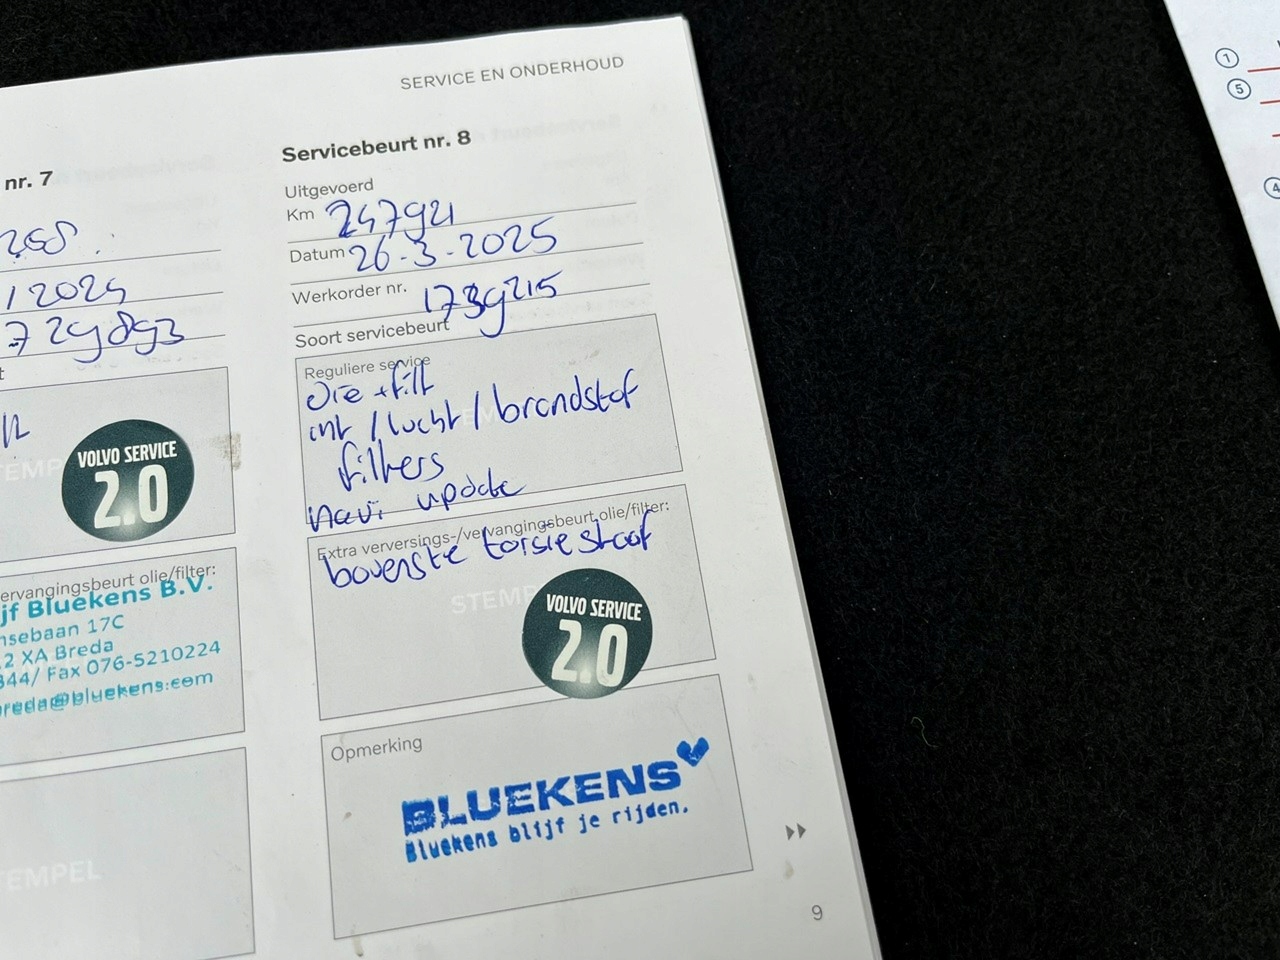 SERVICE EN ONDERHOUD
nr. 7
268
/ 2024
7 29893
VOLVO SERVICE
2.0
ervangingsbeurt olie/filter:
jf Bluekens B.V.
nsebaan 17C
2 XA Breda
344/ Fax 076-5210224
breda@bluekens.com
EMPEL
Servicebeurt nr. 8
Uitgevoerd
Km 247921
Datum 26-3-2025
Werkorder nr. 1739215
Soort servicebeurt
Reguliere service
Olie + filt
int / lucht / brandstof
filters
navi update
Extra verversings-/vervangingsbeurt olie/filter:
bovenste torsie staaf
STEMP
VOLVO SERVICE
2.0
Opmerking
BLUEKENS
Bluekens blijf je rijden.
9
1
5
4